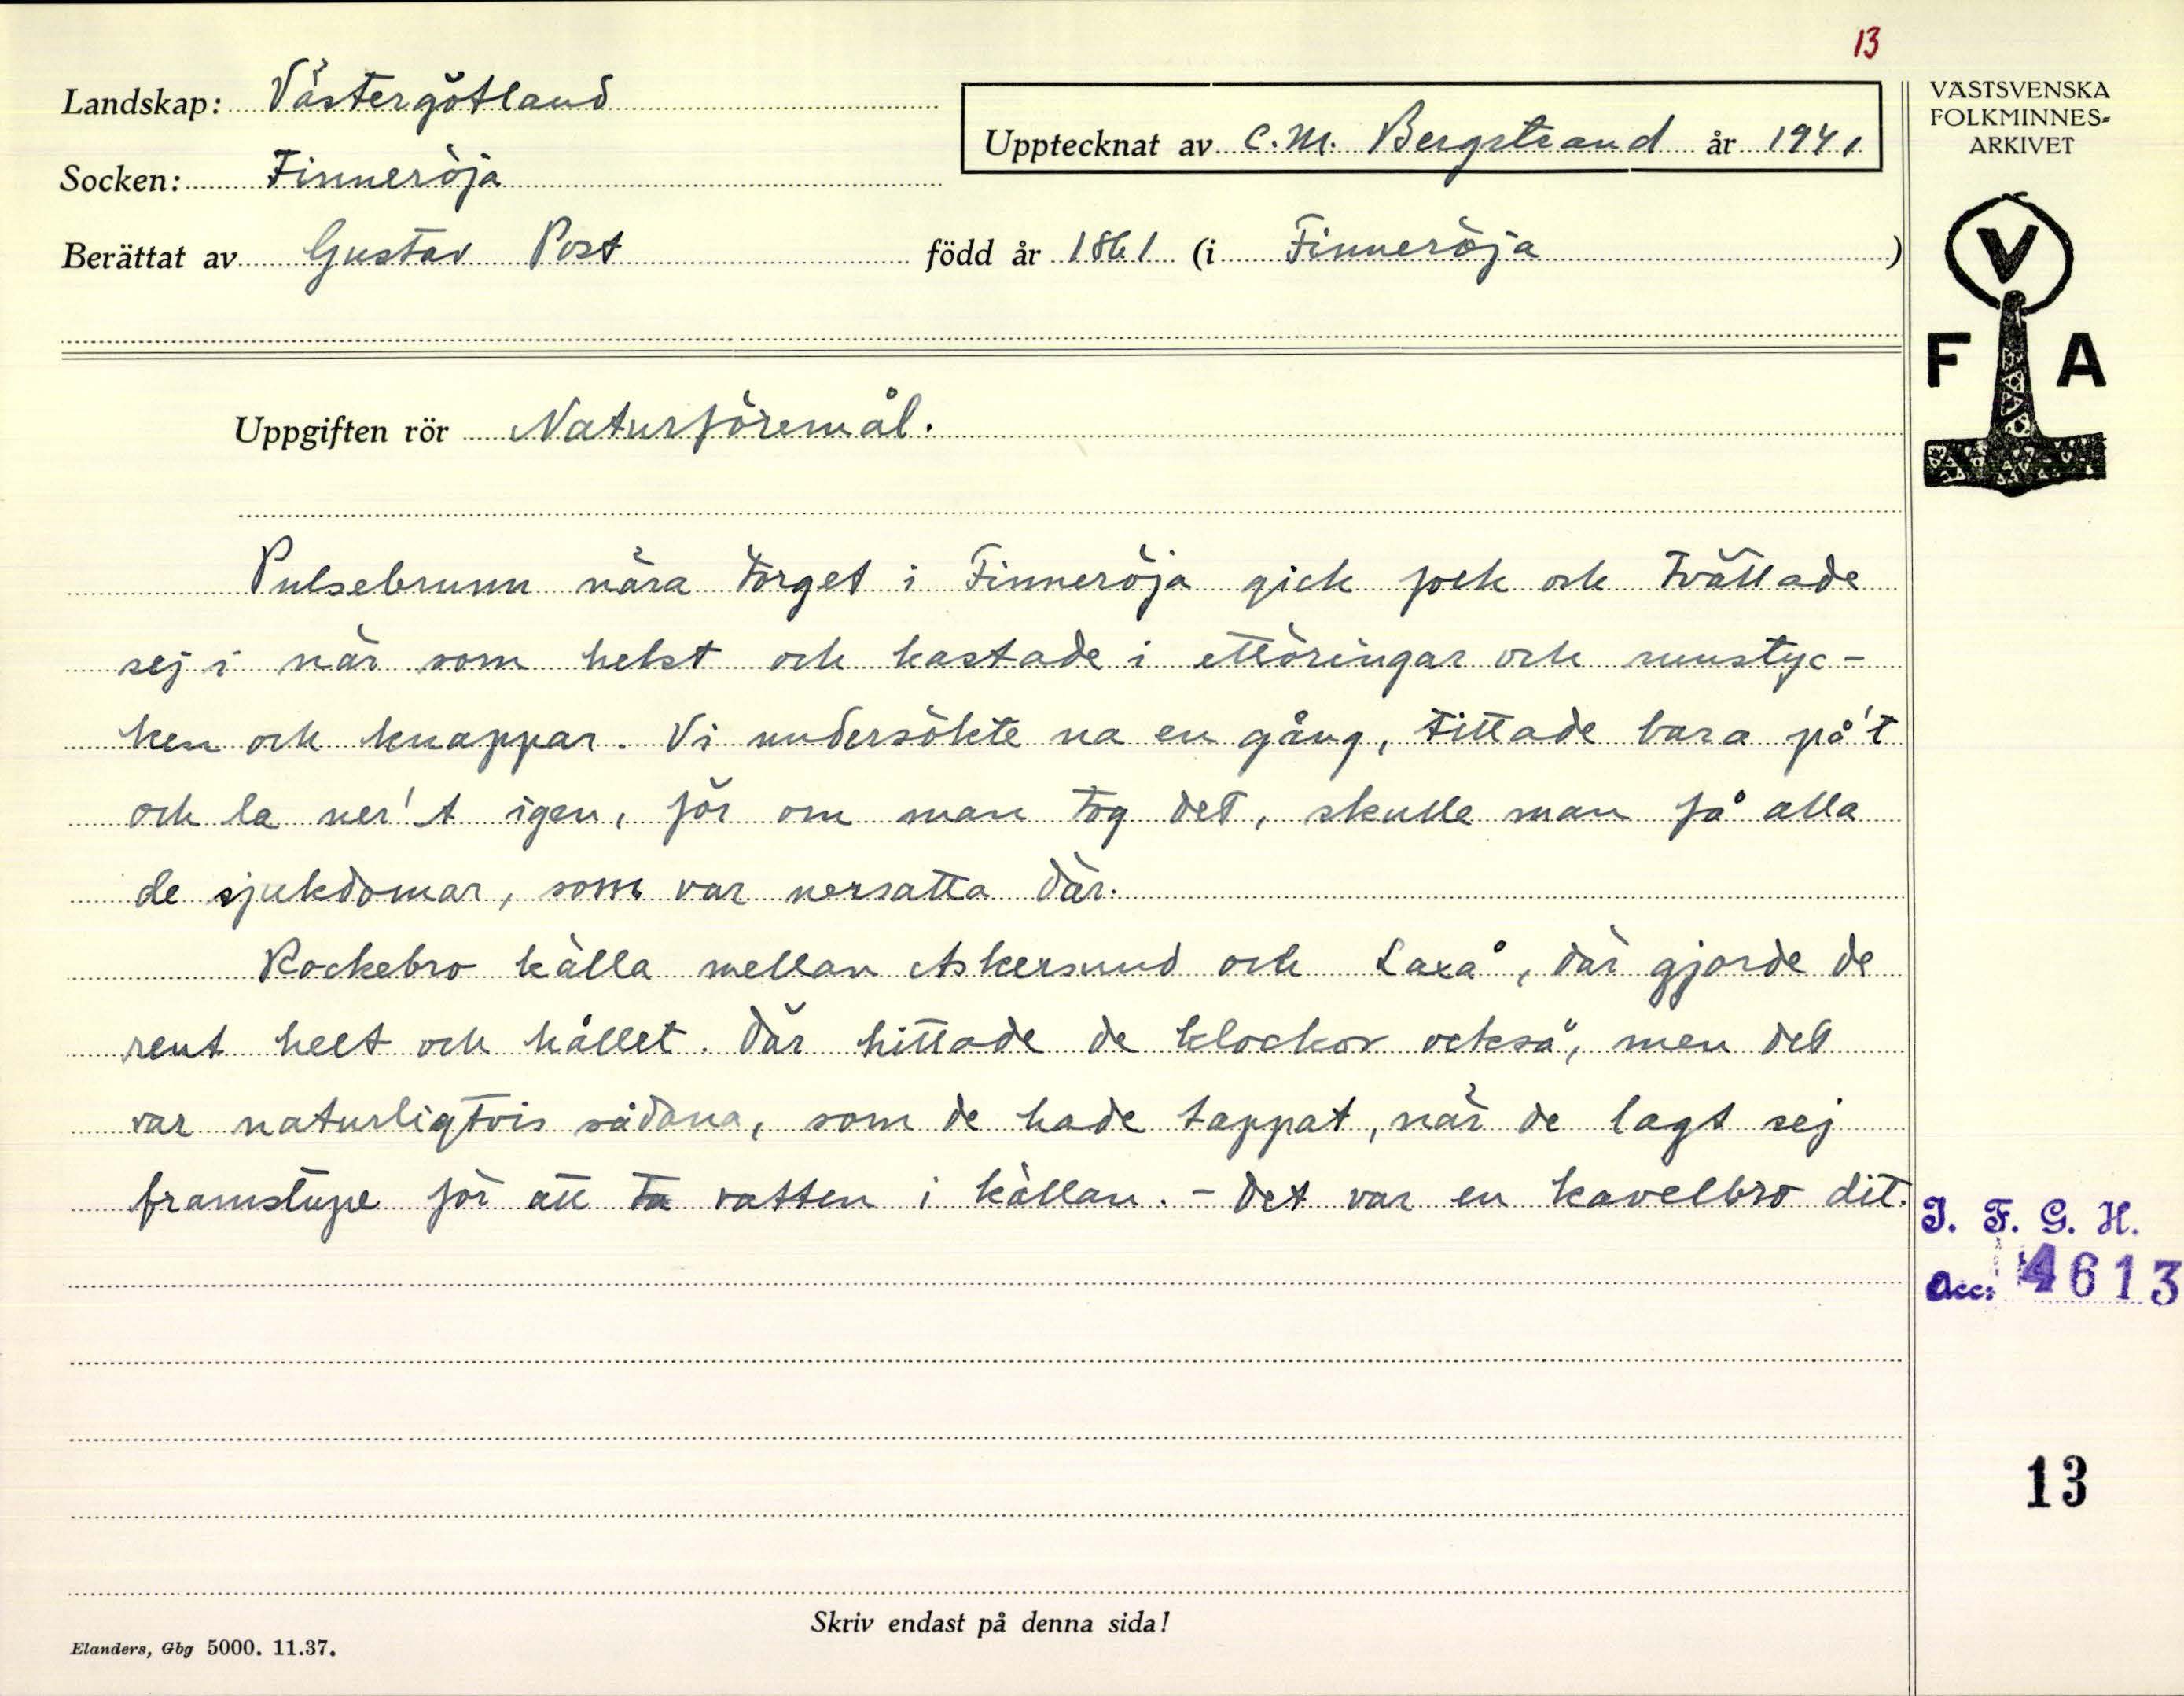 13
Landskap: Västergötland
Upptecknat av C. M. Bergstrand år 1941
Socken: Finneröja
Berättat av Gustav Post född år 1861 (i Finneröja )
VÄSTSVENSKA
FOLKMINNES-
ARKIVET
V
F A
Uppgiften rör Naturföremål.
Pulsebrunn nära torget i Finneröja gick folk och tvättade
sej i när som helst och kastade i ettöringar och runstyc-
ken och knappar. Vi undersökte na en gång, tittade bara på't
och la ner't igen, för om man tog det, skulle man få alla
de sjukdomar, som var nersatta där.
Rockebro källa mellan Askersund och Laxå, där gjorde de
rent helt och hållet. Där hittade de klockor också, men det
var naturligtvis sådana, som de hade tappat, när de lagt sej
framstupe för att ta vatten i källan. - Det var en kavelbro dit.
I. F. G. H.
Acc: 4613
13
Skriv endast på denna sida!
Elanders, Gbg 5000. 11.37.